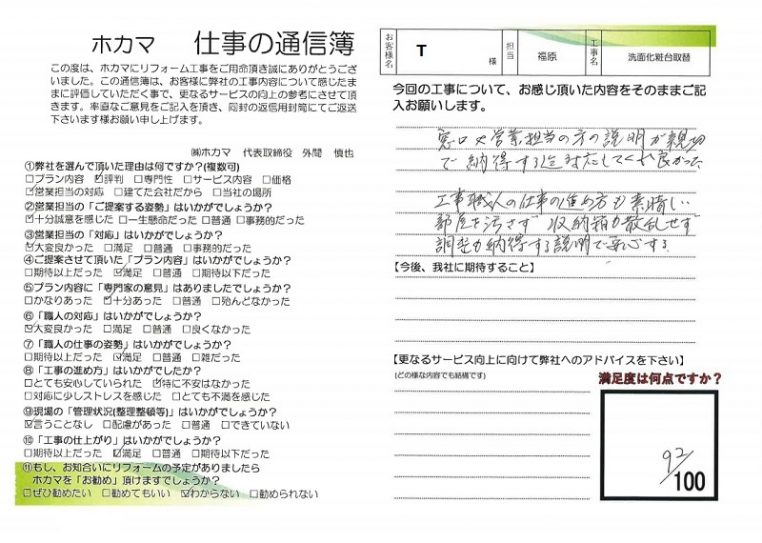 ホカマ 仕事の通信簿
この度は、ホカマにリフォーム工事をご用命頂き誠にありがとうござ
いました。この通信簿は、お客様に弊社の工事内容について感じたま
まに評価していただく事で、更なるサービスの向上の参考にさせて頂
きます。率直なご意見をご記入を頂き、同封の返信用封筒にてご返送
下さいます様お願い申し上げます。
㈱ホカマ 代表取締役 外間 慎也
①弊社を選んで頂いた理由は何ですか?(複数可)
□プラン内容 ☑評判 □専門性 □サービス内容 □価格
☑営業担当の対応 □建てた会社だから □当社の場所
②営業担当の「ご提案する姿勢」はいかがでしょうか?
☑十分誠意を感じた □一生懸命だった □普通 □事務的だった
③営業担当の「対応」はいかがでしょうか?
☑大変良かった □満足 □普通 □事務的だった
④ご提案させて頂いた「プラン内容」はいかがでしょうか?
□期待以上だった ☑満足 □普通 □期待以下だった
⑤プラン内容に「専門家の意見」はありましたでしょうか?
□かなりあった ☑十分あった □普通 □殆んどなかった
⑥「職人の対応」はいかがでしょうか?
☑大変良かった □満足 □普通 □良くなかった
⑦「職人の仕事の姿勢」はいかがでしょうか?
□期待以上だった ☑満足 □普通 □雑だった
⑧「工事の進め方」はいかがでしたか?
□とても安心していられた ☑特に不安はなかった
□対応に少しストレスを感じた □とても不満を感じた
⑨現場の「管理状況(整理整頓等)」はいかがでしょうか?
☑言うことなし □配慮があった □普通 □できていない
⑩「工事の仕上がり」はいかがでしょうか?
□期待以上だった ☑満足 □普通 □期待以下だった
⑪もし、お知合いにリフォームの予定がありましたら
ホカマを「お勧め」頂けますでしょうか?
□ぜひ勧めたい □勧めてもいい ☑わからない □勧められない
お客様名 T 様 担当 福原 工事名 洗面化粧台取替
今回の工事について、お感じ頂いた内容をそのままご記
入お願いします。
窓口や営業担当の方の説明が親切
で納得する迄対応してくれ良かった
工事職人の仕事の進め方も素晴しい
部屋を汚さず 収納箱も散乱せず
調整も納得する説明で安心する
【今後、我社に期待すること】
【更なるサービス向上に向けて弊社へのアドバイスを下さい】
(どの様な内容でも結構です)
満足度は何点ですか?
92/100